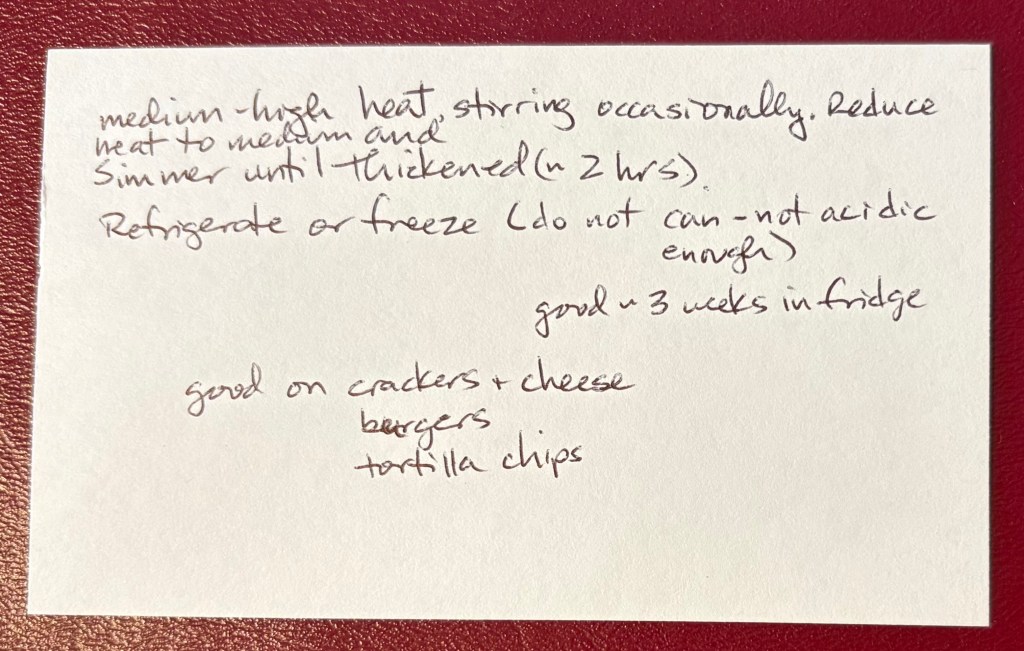 medium-high heat, stirring occasionally. Reduce
heat to medium and
simmer until thickened (~ 2 hrs).
Refrigerate or freeze (do not can - not acidic
enough)
good ~ 3 weeks in fridge
good on crackers + cheese
burgers
tortilla chips